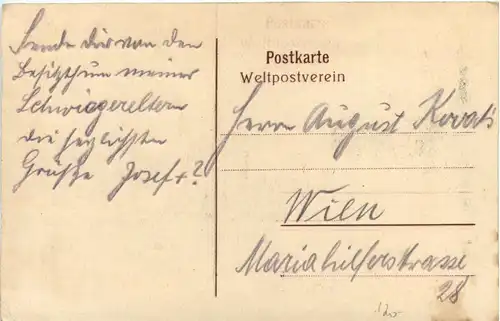 Sende dir von den
Besitzthum meiner
Schwiegereltern
die herzlichsten
Grüße Josef
Postkarte
Weltpostverein
Herrn August Kovats
Wien
Mariahilferstrasse
28
120-